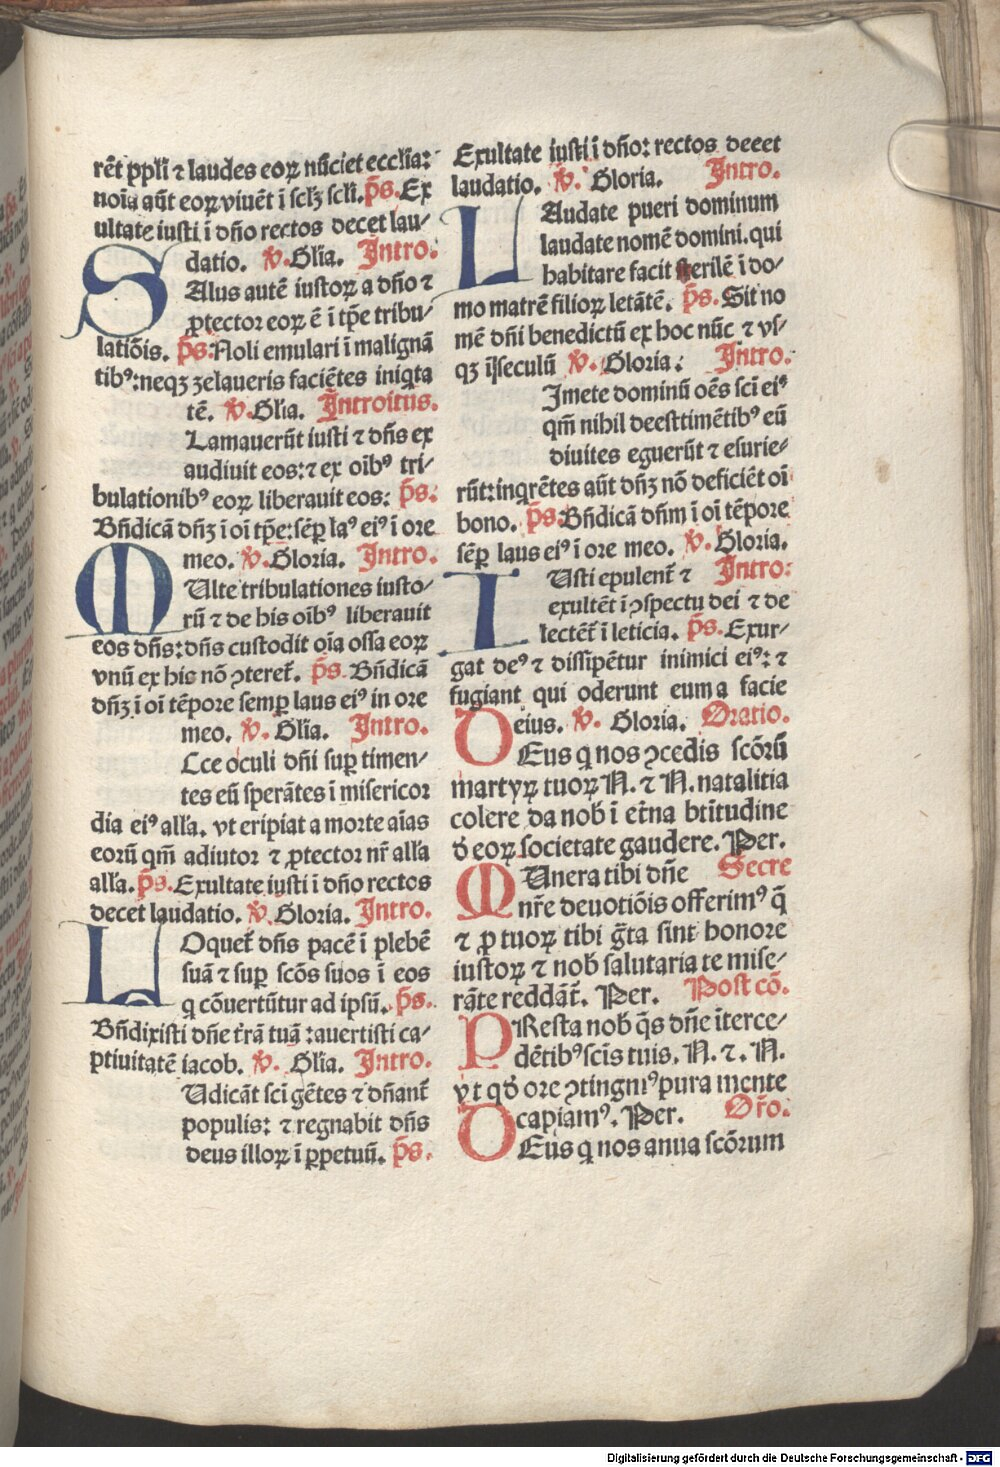 rēt ppl'i ⁊ laudes eoꝝ nūciet eccl'ia:
noīa aūt eoꝝ viuēt ī scl'ꝫ scl'i. p̄s. Ex
ultate iusti ī dn̄o rectos decet lau⸗
datio. ꝟ. Gl'ia. Intro.
SAlus autē iustoꝝ a dn̄o ⁊
ꝓtector eoꝝ ē ī tp̄e tribu⸗
latiōis. p̄s: Noli emulari ī malignā
tibꝰ: neqꝫ zelaueris faciētes iniqta
tē. ꝟ. Gl'ia. Introitus.
Lamauerūt iusti ⁊ dn̄s ex
audiuit eos: ⁊ ex oībꝰ tri⸗
bulationibꝰ eoꝝ liberauit eos: p̄s:
Bn̄dicā dn̄ꝫ ī oī tp̄e: sēꝑ laꝰ eiꝰ ī ore
meo. ꝟ. Gloria. Intro.
MUlte tribulationes iusto⸗
rū ⁊ de his oībꝰ liberauit
eos dn̄s: dn̄s custodit oīa ossa eoꝝ
vnū ex his nō ꝯteret̄. p̄s. Bn̄dicā
dn̄ꝫ ī oī tēpore semꝑ laus eiꝰ in ore
meo. ꝟ. Gl'ia. Intro.
Cce oculi dn̄i suꝑ timen⸗
tes eū sperātes ī misericor
dia eiꝰ all'a. vt eripiat a morte aīas
eorū qm̄ adiutor ⁊ ꝓtector nr̄ all'a
all'a. p̄s. Exultate iusti ī dn̄o rectos
decet laudatio. ꝟ. Gloria. Intro.
LOquet̄ dn̄s pacē ī plebē
suā ⁊ suꝑ scōs suos ī eos
q cōuertūtur ad ipsū. p̄s.
Bn̄dixisti dn̄e t̄rā tuā: auertisti ca⸗
ptiuitatē iacob. ꝟ. Gl'ia. Intro.
Udicāt sci gētes ⁊ dn̄ant̄
populis: ⁊ regnabit dn̄s
deus illoꝝ ī ꝑpetuū. p̄s.
Exultate iusti ī dn̄o: rectos decet
laudatio. ꝟ. Gloria. Intro.
LAudate pueri dominum
laudate nomē domini. qui
habitare facit sterilē ī do⸗
mo matrē filioꝝ letātē. p̄s. Sit no
mē dn̄i benedictū ex hoc nūc ⁊ vs⸗
qꝫ ī seculū ꝟ. Gloria: Intro.
Imete dominū oēs sci eiꝰ
qm̄ nihil deest timētibꝰ eū
diuites eguerūt ⁊ esurie⸗
rūt: inqrētes aūt dn̄ꝫ nō deficiēt oī
bono. p̄s. Bn̄dicā dn̄m ī oī tēpore
sēꝑ laus eiꝰ ī ore meo. ꝟ. Gloria.
IUsti epulent̄ ⁊ Intro:
exultēt ī ꝯspectu dei ⁊ de
lectēt̄ ī leticia. p̄s. Exur⸗
gat deꝰ ⁊ dissipētur inimici eiꝰ: ⁊
fugiant qui oderunt eum a facie
eius. ꝟ. Gloria. Oratio.
DEus q nos ꝯcedis scōrū
martyꝝ tuoꝝ N. ⁊ N. natalitia
colere da nob' ī et̄na bt̄itudine
ꝺ̄ eoꝝ societate gaudere. Per.
MUnera tibi dn̄e Secre
nr̄e deuotiōis offerimꝰ q̄
⁊ ꝓ tuoꝝ tibi ḡta sint honore
iustoꝝ ⁊ nob' salutaria te mise⸗
rāte reddāt̄. Per. Post cō.
PResta nob' q̄s dn̄e īterce⸗
dētibꝰ scīs tuis. N. ⁊. N.
vt qꝺ̄ ore ꝯtingnīꝰ pura mente
capiamꝰ. Per. Or̄o.
DEus q nos anua scōrum
Digitalisierung gefördert durch die Deutsche Forschungsgemeinschaft - DFG